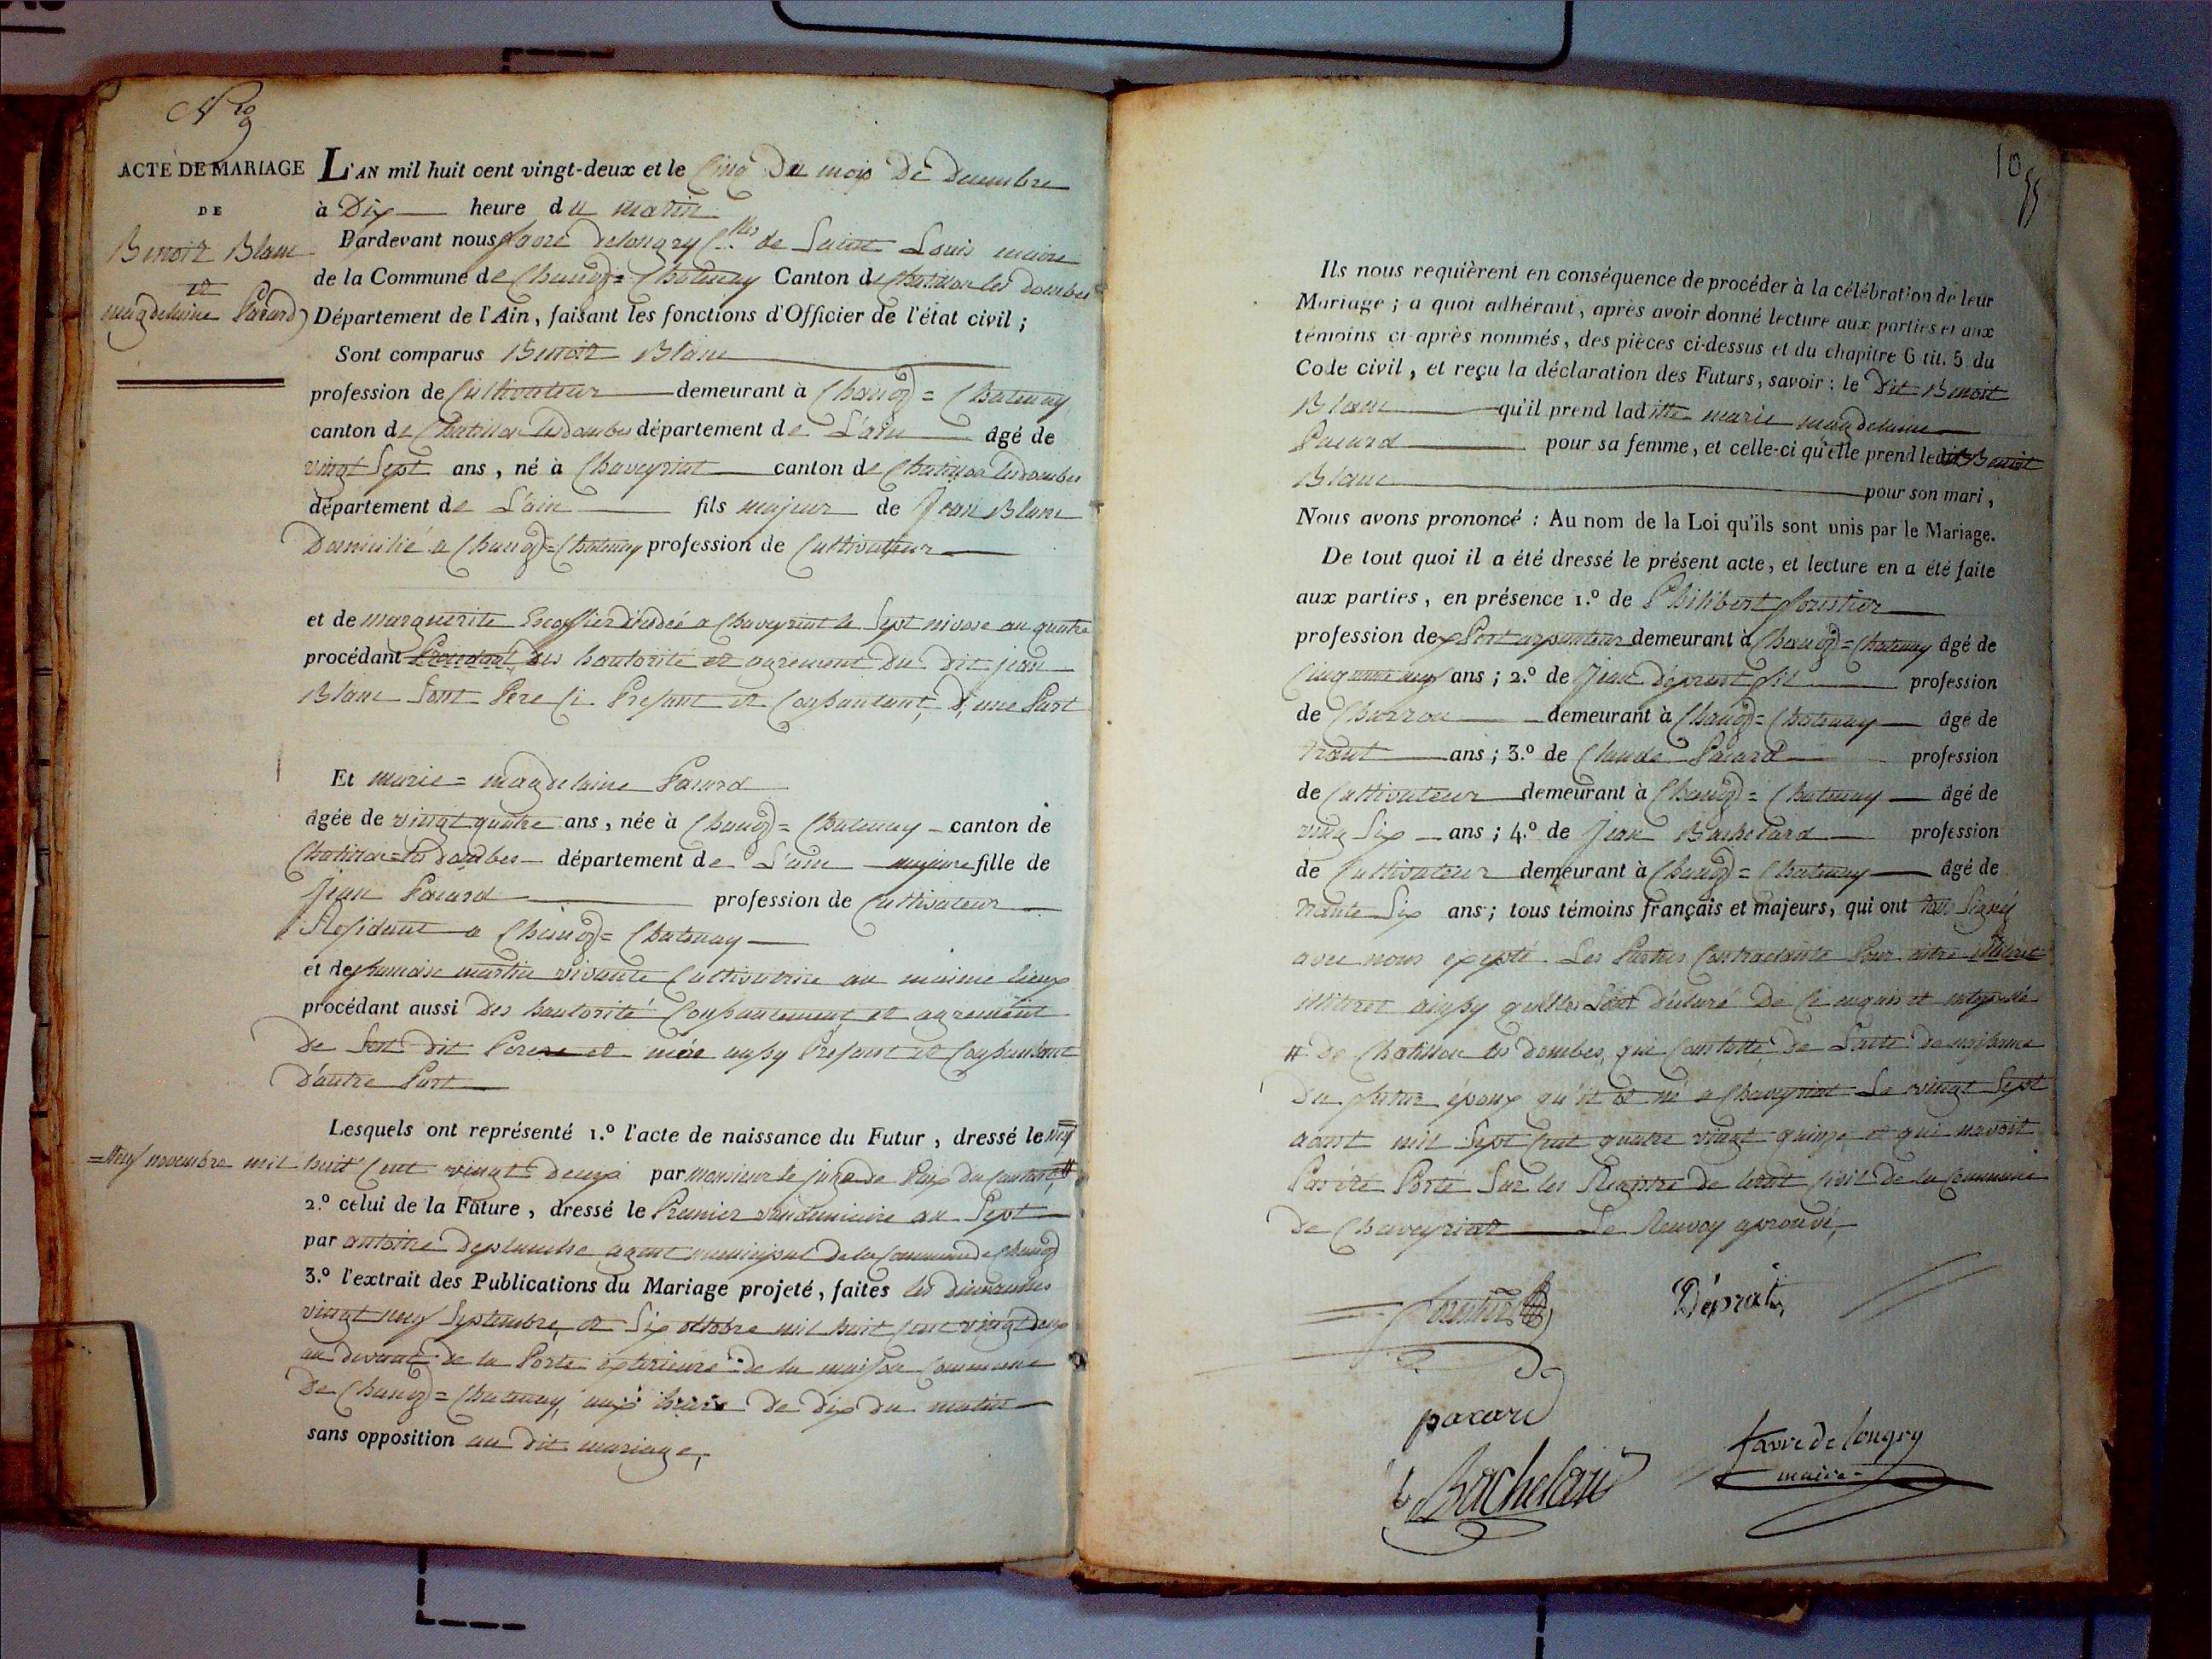 N° 9
ACTE DE MARIAGE
DE
Benoit Blanc
et
magdelaine Pacard
L'AN mil huit cent vingt-deux et le Cinq Du mois De Decembre
à Dix heure du matin
Pardevant nous favre delongry Ch.er de Saint Louis maire
de la Commune de Chanoz=Chatenay Canton de Chatillon les dombes
Département de l'Ain, faisant les fonctions d'Officier de l'état civil ;
Sont comparus Benoit Blanc
profession de Cultivateur demeurant à Chanoz=Chatenay
canton de Chatillon les dombes département de L'ain âgé de
vingt Sept ans, né à Chaveyriat canton de Chatillon les dombes
département de L'ain fils majeur de Jean Blanc
Domicilié a Chanoz=Chatenay profession de Cultivateur
et de marguerite Escoffier décédée a Chaveyriat le Sept nivose an quatre
procédant des hautorité et agrement du dit jean
Blanc Sont Père Ci Present et Consentant, D'une Part
Et marie=magdelaine Pacard
âgée de vingt quatre ans, née à Chanoz=Chatenay canton de
Chatillon=les dombes département de L'ain majeure fille de
Jean Pacard profession de Cultivateur
Residant a Chanoz=Chatenay
et de francoise martin vivante Cultivatrice au meime lieux
procédant aussi Des hautorité Consentement et agrement
De Sest dit Perere et mére ausy Présent et Consentant
D'autre Part
Lesquels ont représenté 1.° l'acte de naissance du Futur, dressé le neuf
=Neuf novembre mil huit Cent vingt deux par monsieur le juge de Paix du Canton #
2.° celui de la Future, dressé le Premier vindemiaire an Sept
par antoine Deplanche agent municipal de la Commune de Chanoz
3.° l'extrait des Publications du Mariage projeté, faites les dimanches
vingt neuf Septembre, et Six octobre mil huit Cent vingt deux
au devant de la Porte exterieure de la maison Commune
De Chanoz=Chatenay, aux heure de dix du matin
sans opposition au dit mariage,
10
Ils nous requièrent en conséquence de procéder à la célébration de leur
Mariage ; a quoi adhérant, après avoir donné lecture aux parties et aux
témoins ci-après nommés, des pièces ci-dessus et du chapitre 6 tit. 5 du
Code civil, et reçu la déclaration des Futurs, savoir : le Dit Benoit
Blanc qu'il prend laditte marie magdelaine
Pacard pour sa femme, et celle-ci qu'elle prend ledit Benoit
Blanc pour son mari,
Nous avons prononcé : Au nom de la Loi qu'ils sont unis par le Mariage.
De tout quoi il a été dressé le présent acte, et lecture en a été faite
aux parties, en présence 1.° de Philibert forestier
profession dex Port arpenteur demeurant à Chanoz=Chatenay âgé de
Cinquante neuf ans ; 2.° de Jean Déprat fils profession
de Charron demeurant à Chanoz=Chatenay âgé de
trant ans ; 3.° de Claude Pacard profession
de Cultivateur demeurant à Chanoz=Chatenay âgé de
ving Six ans ; 4.° de Jean Bachelard profession
de Cultivateur demeurant à Chanoz=Chatenay âgé de
trante Six ans ; tous témoins français et majeurs, qui ont tous Signé
avec nous excepté Les Parties Contractante Pour aitre
illiteret ainsy quelles Lont Déclaré De Ce enquis et
# De Chatillon les dombes, qui Constatte De Lacte De naissance
Du futur époux qu'il né a Chaveyriat Le vingt Sept
aoust mil Sept Cent quatre vingt quinze et qui navoit
Pas été Porté Sur les Registre De létat Civil De la Commune
De Chaveyriat Le Renvoy aprouvé,
forestier
Déprat,
pacard
Bachelard
favre de longry
maire